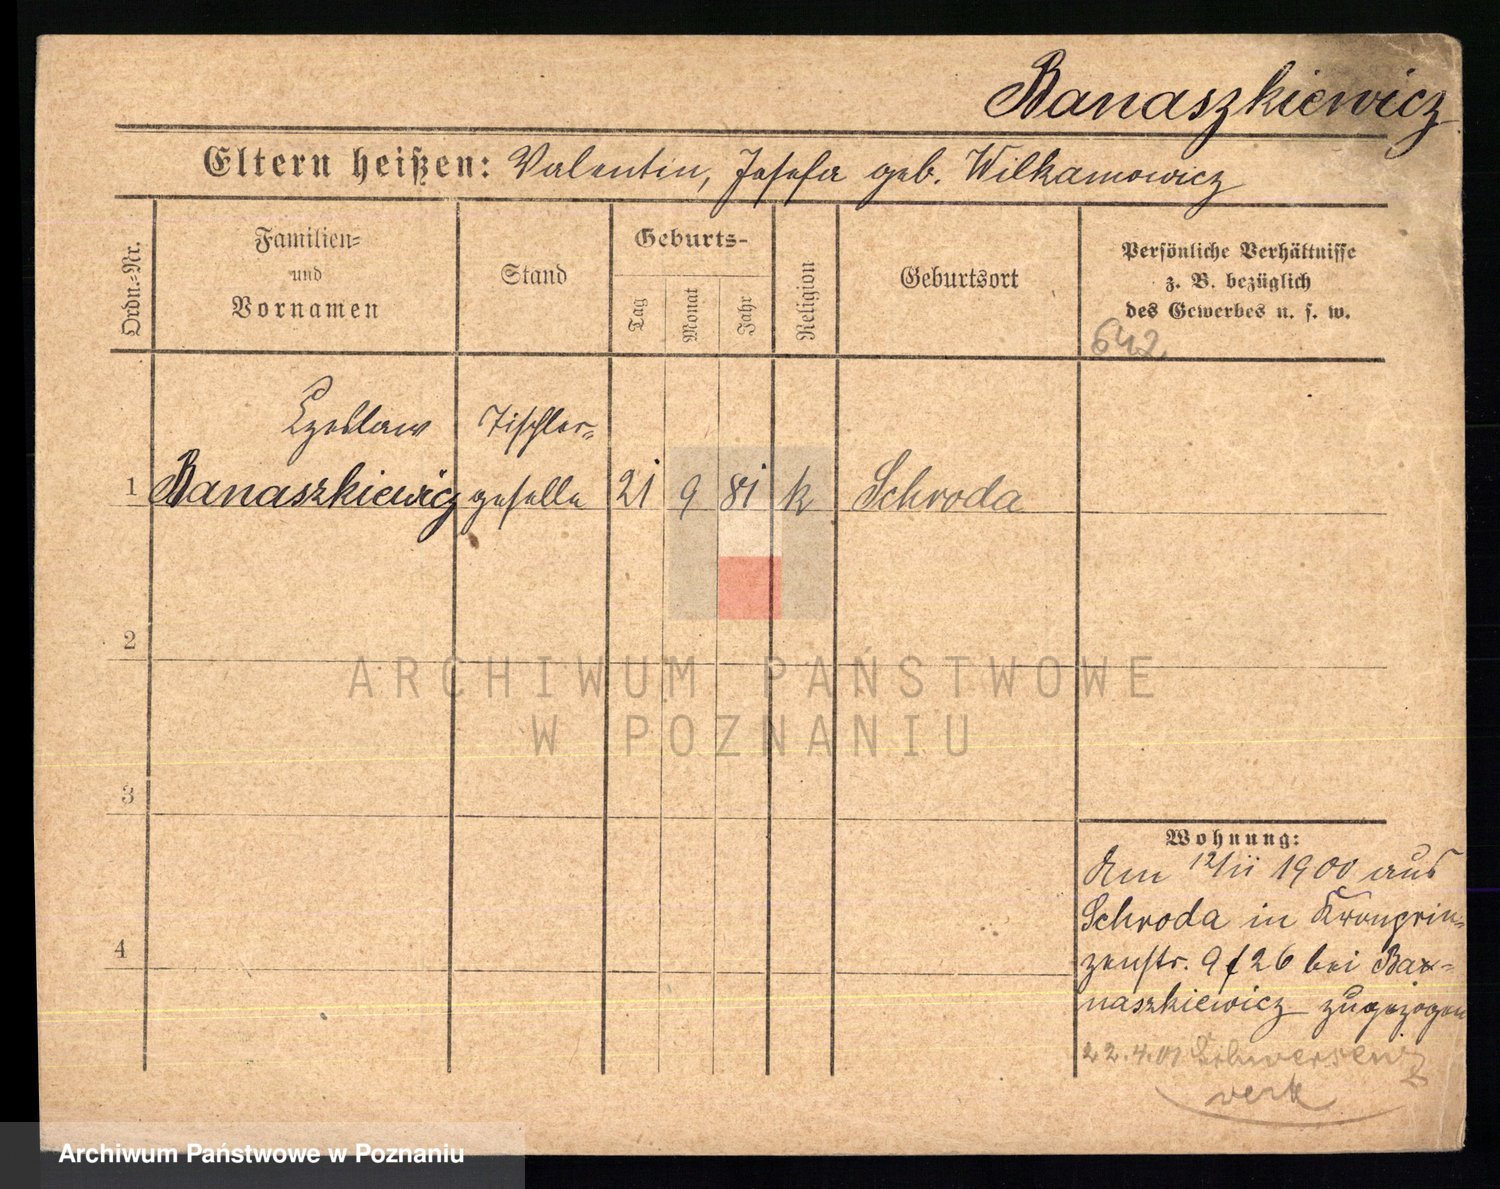 Banaszkiewicz
Eltern heißen: Valentin, Josefa geb. Wilkamowicz
Ordn.-Nr.
Familien-
und
Vornamen
Stand
Geburts-
Tag
Monat
Jahr
Religion
Geburtsort
Persönliche Verhältnisse
z. B. bezüglich
des Gewerbes u. s. w.
642
Czeslaw Tischler-
1 Banaszkiewicz geselle 21 9 81 k Schroda
2
3
4
Wohnung:
Am 12/11 1900 aus
Schroda in Kronprin-
zenstr. 9 f 26 bei Ba-
naszkiewicz zugezogen
22.4.01 Schwersenz
verk
ARCHIWUM PAŃSTWOWE
W POZNANIU
Archiwum Państwowe w Poznaniu